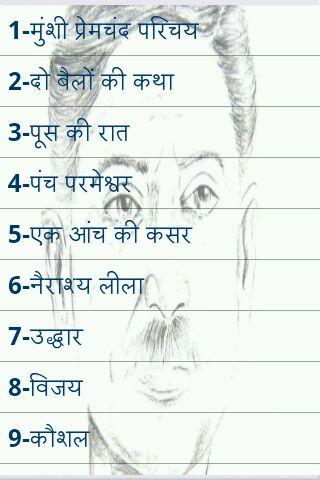 1-मुंशी प्रेमचंद परिचय
2-दो बैलों की कथा
3-पूस की रात
4-पंच परमेश्वर
5-एक आंच की कसर
6-नैराश्य लीला
7-उद्धार
8-विजय
9-कौशल